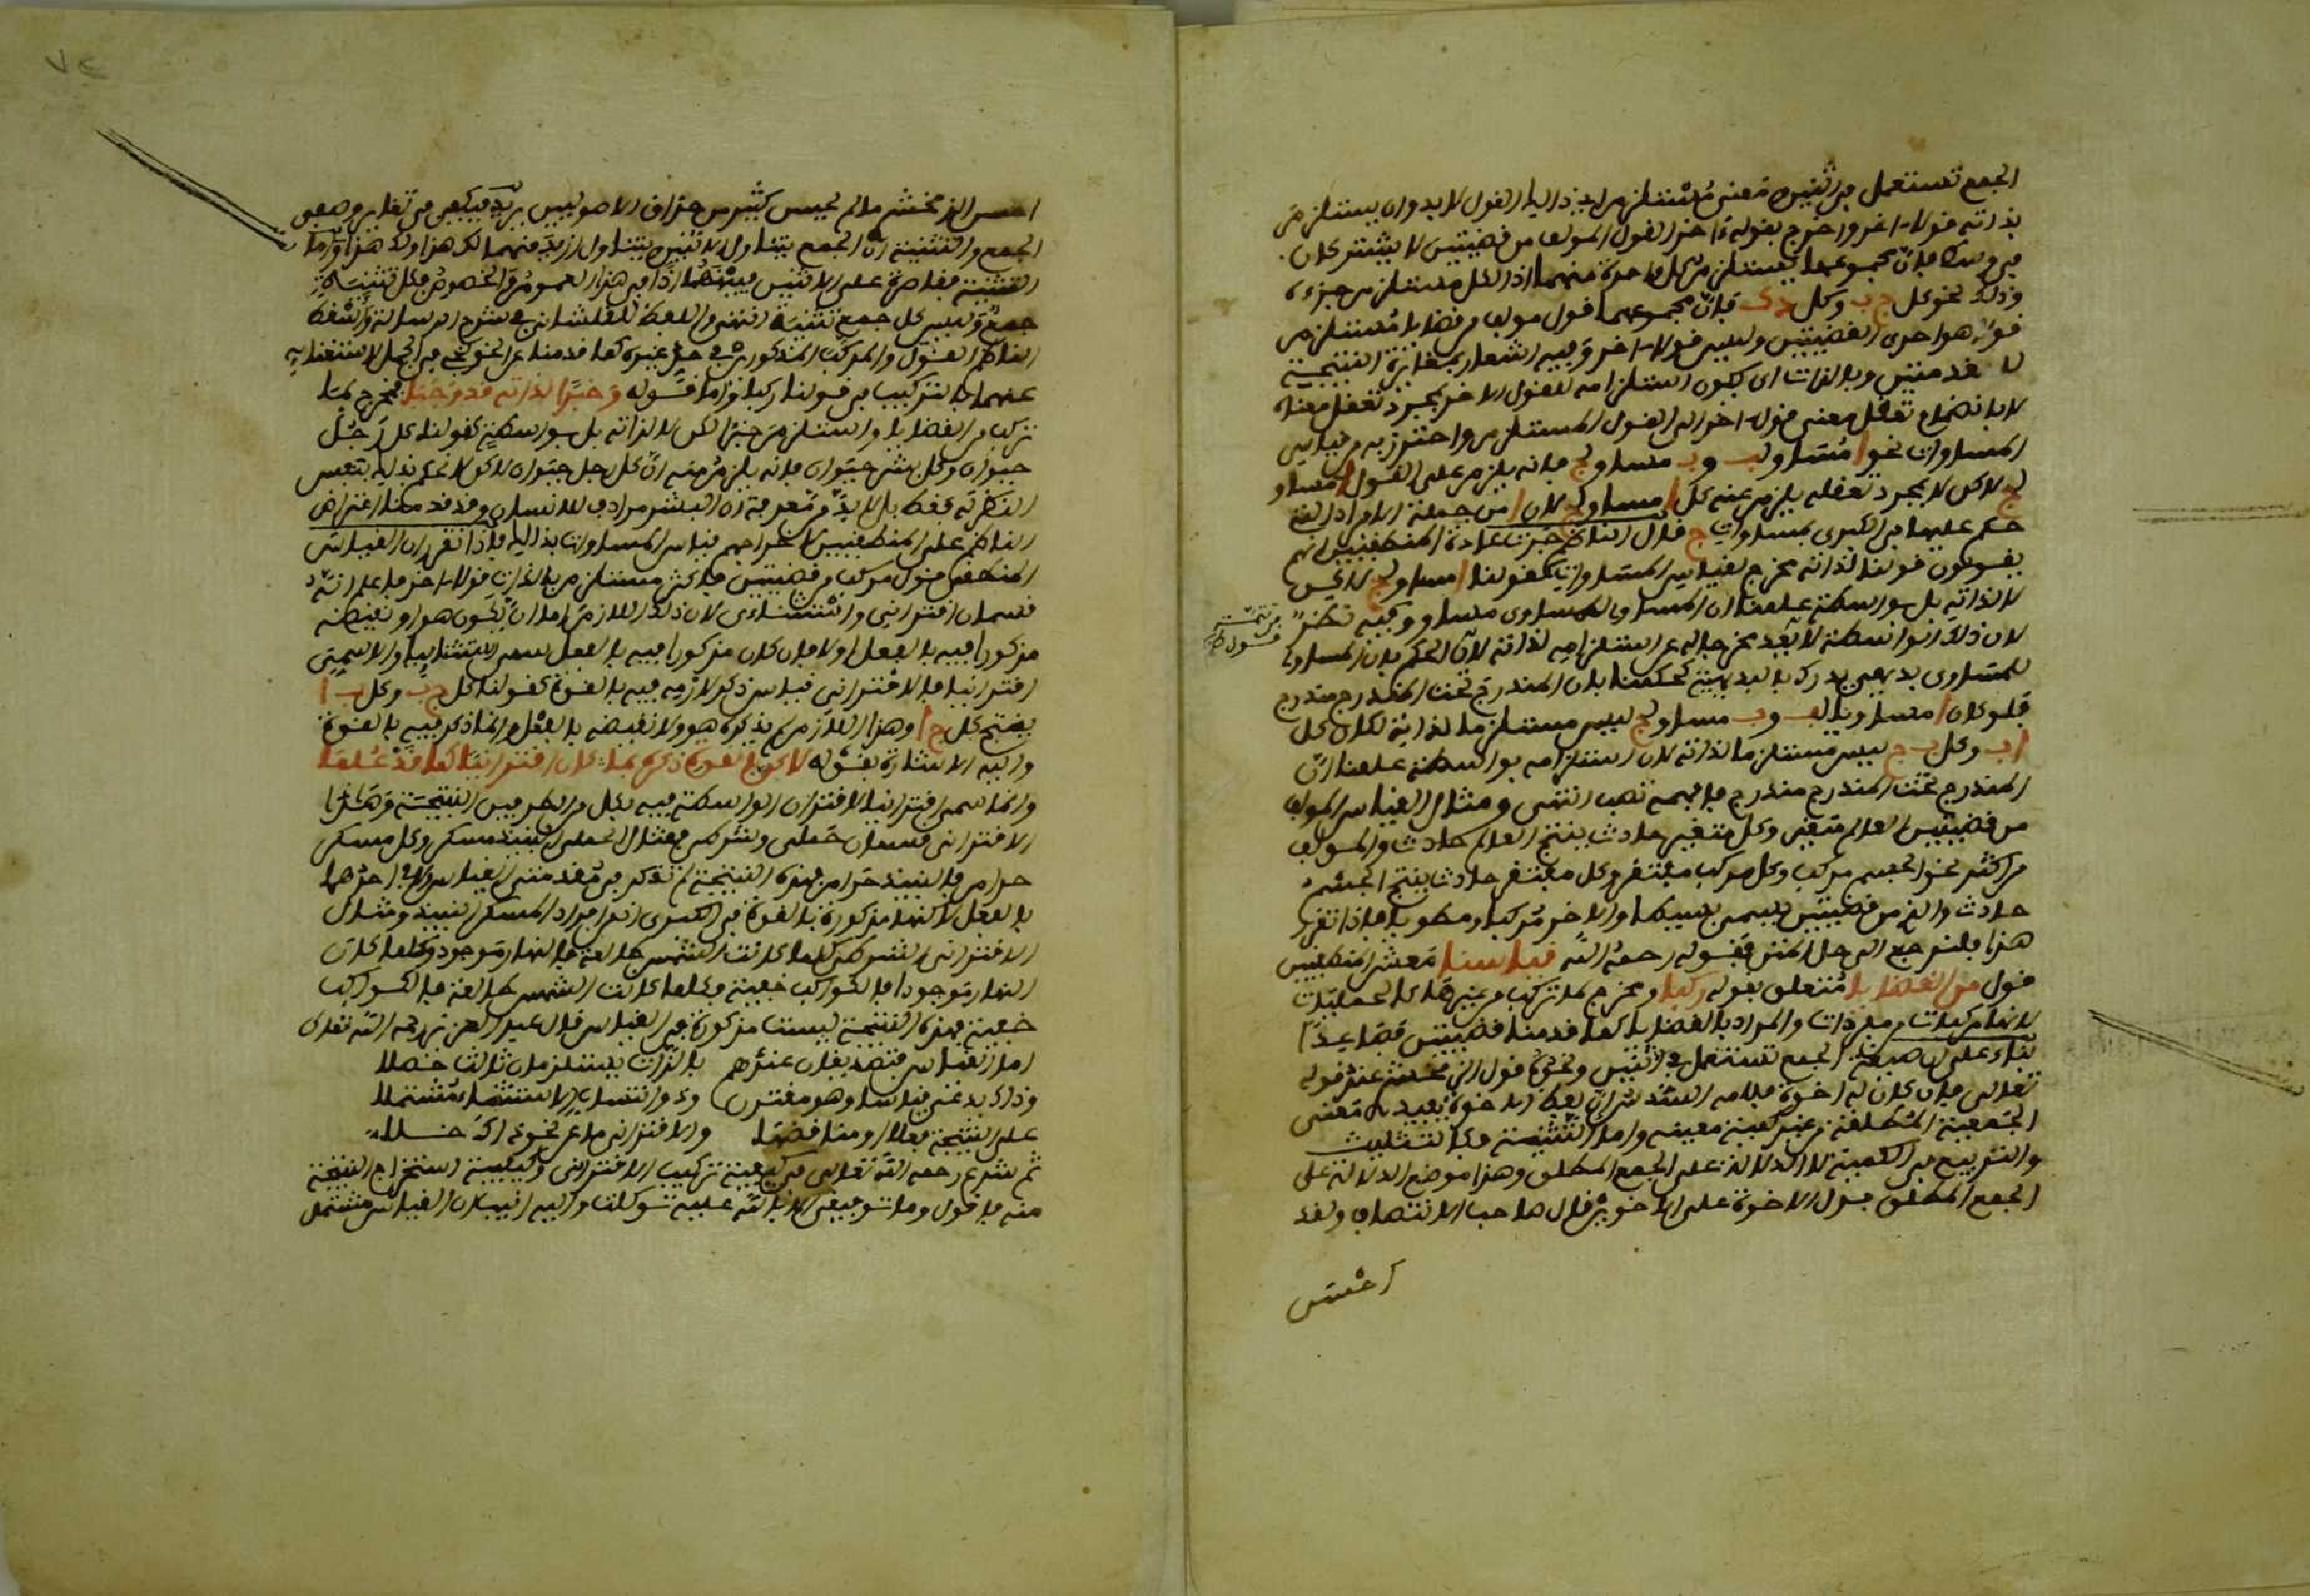 الجمع تستعمل في اثنين معنى مستلزم لان ذا اليا القول لا بد وان يستلزم
بذاته قولا اخر واخرج بقوله اخر القول المولف من قضيتين لا يشتركان
في وسط فان مجموعهما يستلزم كل واحدة منهما اذ الكل مستلزم جزءه
وذلك نحو كل ج ب وكل د ك فان مجموعهما قول مولف من قضايا مستلزم
قولا هو احدى القضيتين وليس قولا اخر وفيه اشعار بمغايرة النتيجة
للمقدمتين وبالذات اى يكون استلزامه للقول الاخر بمجرد تعقل معناه
لا بانضمام تعقل معنى قول اخر الى القول المستلزم واحترز به من قياس
المساوات نحو ا مساو لب وب مساو لج فانه يلزم على القول ا مساو
لج لاكن لا بمجرد تعقله يلزم عنه كل ا مساو لج لان ا من جملة الافراد التى
حكم عليها في الكبرى بمساوات ج قال الناظم جرت عادة المنطقيين انهم
يقولون قولنا لذاته يخرج لقياس المساوات كقولنا ا مساو لج لاكن
لا لذاته بل بواسطة علمنا ان المساوي للمساوى مساو وفيه نظر
لان ذلك الواسطة لا بعد يخرجه له عن استلزامه لذاته لان الحكم بان المساوى
للمساوى بديهي يدرك بالبديهة كحكمنا بان المندرج تحت المندرج مندرج
فلو كان ا مساو يا لب وب مساو لج ليس مستلزما لذاته لكان كل
ا ب وكل ب ج ليس مستلزما لذاته لان استلزامه بواسطة علمنا ان
المندرج تحت المندرج مندرج فافهمه تصب انتهى ومثال القياس المولف
من قضيتين العالم متغير وكل متغير حادث ينتج العالم حادث والمولف
من اكثر نحو الجسم مركب وكل مركب مفتقر وكل مفتقر حادث ينتج الجسم
حادث والف من قضيتين يسمى بسيطا والاخر مركبا ومطويا فاذا تقرر
هذا فلنرجع الى حل المتن فقوله رحمه الله قياسنا معشر المنطقيين
قول من القضايا متعلق بقوله ركبا ويخرج ما تركب من غيرها كالحمليات
لانها مركبات من مفردات والمراد بالقضايا كما قدمنا قضيتين فصاعدا
بناء على ان صيغة الجمع تستعمل في اثنين ونحوه قول الزمخشرى عند قوله
تعالى فان كان له اخوة فلامه السدس ان لفظ الاخوة يفيد معنى
الجمعية المطلقة من غير كمية معينة واما التثنية فكالتثليث
والتربيع في الكمية لا الدلالة على الجمع المطلق وهذا موضع الدلالة على
الجمع المطلق فدل الاخوة على الاخوين قال صاحب الانتصاف ولقد
احسن
احسن الزمخشرى ما لم يحسن كثير من حذاق الاصوليين يريد فيكفي في تغاير وضعي
الجمع والتثنية ان الجمع يتناول الاثنين ويتناول ازيد منهما لك هذا ولك هذا واما
التثنية فقاصرة على الاثنين فبينهما اذا في هذا العموم والخصوص فكل تثنية
جمع وليس كل جمع تثنية انتهى واللفظ للقلشاني في شرح الرسالة واسقط
الناظم القول والمركب المذكورين في حد غيره كما قدمنا عن الخونجي في الجمل لاستغنائه
عنهما بالتركيب في قولنا ركبا واما قوله وخبرا لذاته قد وجبا فيخرج ما
تركب من القضايا واستلزم خبرا لكن لا لذاته بل بواسطة كقولنا كل رجل
حيوان وكل بشر حيوان فانه يلزم منه ان كل رجل حيوان لاكن لا نعلم ذلك بنفس
النظر به فقط بل لا بد من معرفة ان البشر مرادف للانسان وقد قدمنا اعتراض
الناظم على المنطقيين لاخراجهم قياس المساوات بذا اليا فاذا تقرر ان القياس
المنطقي قول مركب من قضيتين فاكثر مستلزم بالذات قولا اخر فاعلم انه
قسمان اقتراني واستثناءى لان ذلك اللازم اما ان يكون هو او نقيضه
مذكورا فيه بالفعل اولا فان كان مذكورا فيه بالفعل سمي استثنائيا والا سمي
اقترانيا فالاقترانى قياس ذكر لازمه فيه بالقوة كقولنا كل ج ب وكل ب ا
ينتج كل ج ا وهذا اللازم لم يذكره هو ولا نقيضه بالفعل وانما ذكر فيه بالقوة
واليه الاشارة بقوله لاكن بقوة ذكره بما كان اقترانيا كما قد علما
وانما سمي اقترانيا لاقتران الواسطة فيه بكل من طرفي النتيجة وهذا
الاقترانى قسمان حملي وشرطي فمثال الحملي النبيذ مسكر وكل مسكر
حرام فالنبيذ حرام فهذه النتيجة لم تذكر في مقدمتي القياس ولا في احدهما
بالفعل لاكنها مذكورة بالقوة في الكبرى اذ من افراد المسكر النبيذ ومثال
الاقترانى الشرطي كلما كانت الشمس طالعة فالنهار موجود وكلما كان
النهار موجودا فالكواكب خفية فكلما كانت الشمس طالعة فالكواكب
خفية فهذه النتيجة ليست مذكورة في القياس قال عبد الرحمن رحمه الله تعالى
اما القياس فقضايا عندهم بالذات يستلزمان ثالث حصلا
وذاك يدعى قياسا وهو مقترن وذو استثناء الاستثناء مشتملا
على النتيجة فعلا او مناقضها والاقتراني ما عن نحو ذاك خلا
ثم شرع رحمه الله تعالى في كيفية تركيب الاقترانى وكيفية استخراج النتيجة
منه فاقول وما توفيقي الا بالله عليه توكلت واليه انيب ان القياس مشتمل